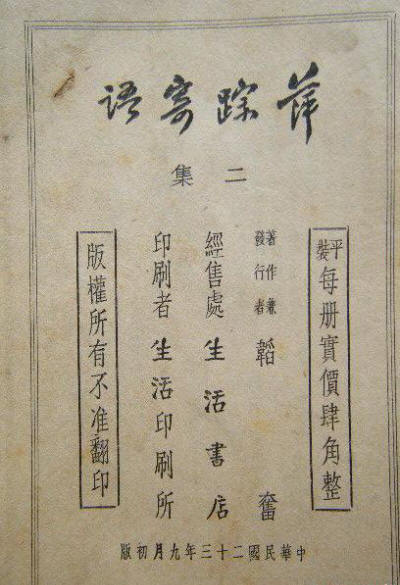 萍踪寄語
二集
平裝每册實價肆角整
著作兼發行者 韜奮
經售處 生活書店
印刷者 生活印刷所
版權所有不准翻印
中華民國二十三年九月初版